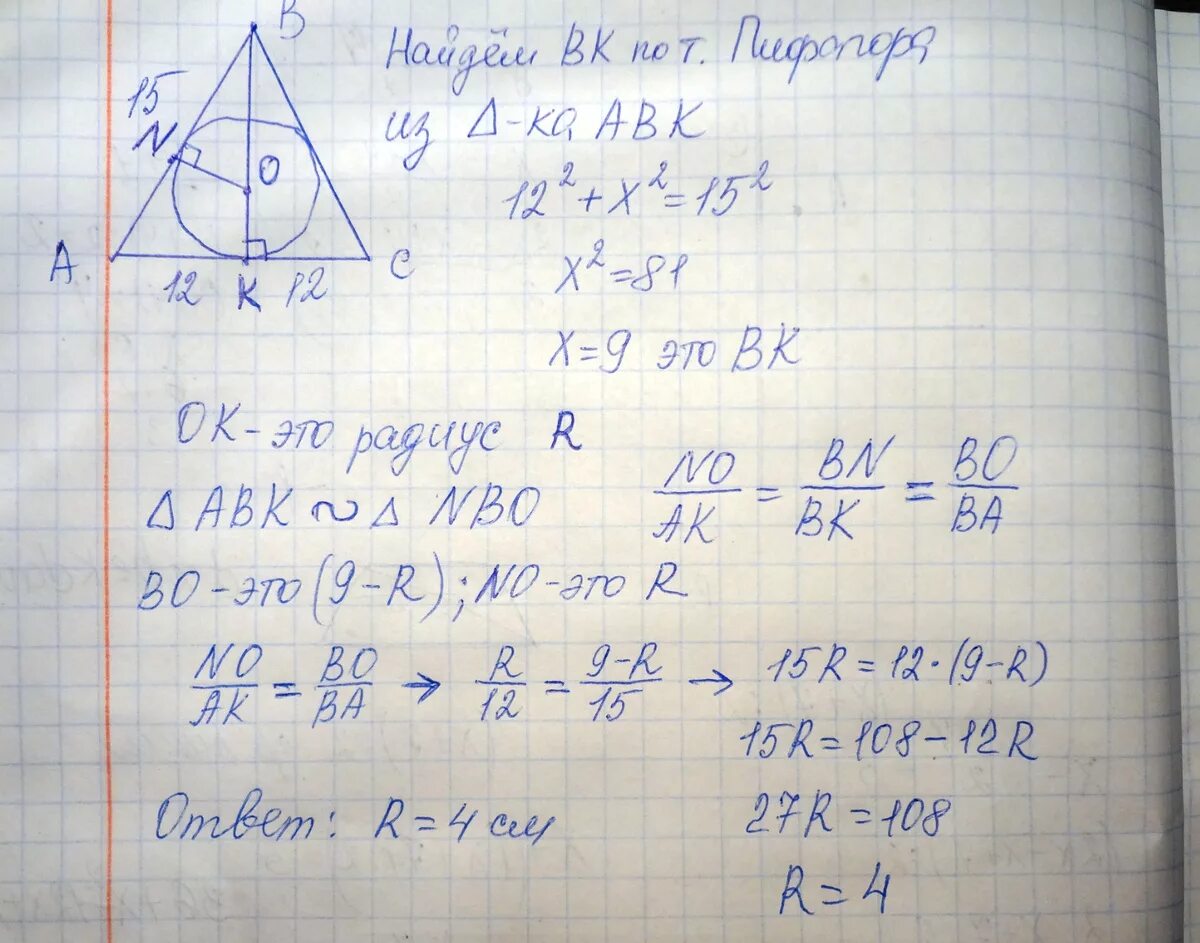 B
15
N
O
A
12 K 12 C
Найдём BK по т. Пифагора
из Δ-ка ABK
12² + x² = 15²
x² = 81
x = 9 это BK
OK - это радиус R
Δ ABK ~ Δ NBO
NO/AK = BN/BK = BO/BA
BO - это (9 - R); NO - это R
NO/AK = BO/BA → R/12 = 9-R/15 → 15R = 12·(9-R)
15R = 108 - 12R
27R = 108
R = 4
Ответ: R = 4 см